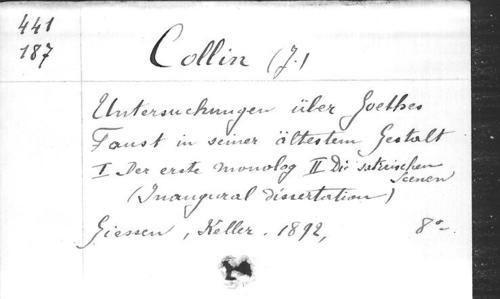 441
187
Collin (J.)
Untersuchungen über Goethes
Faust in seiner ältestem Gestalt
I Der erste monolog II Die satirischen
Scenen
(Inaugural dissertation)
Giessen, Keller. 1892, 8°